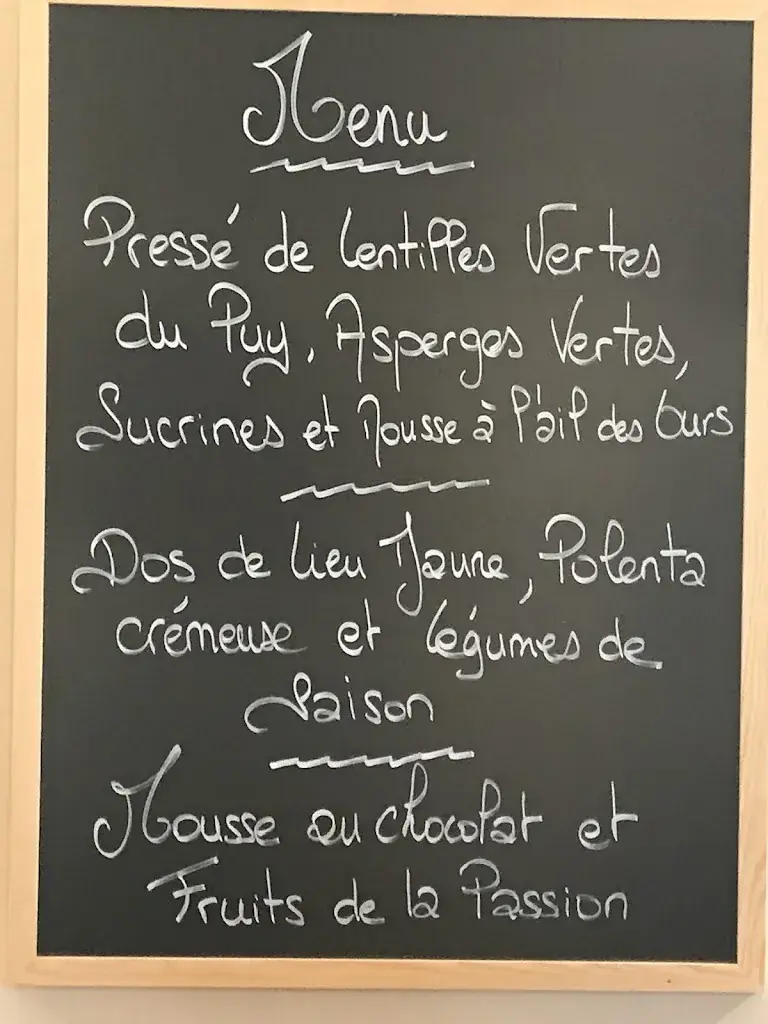 Menu
Pressé de lentilles Vertes
du Puy, Asperges Vertes,
Sucrines et Mousse à l'ail des Ours
Dos de lieu Jaune, Polenta
crémeuse et légumes de
Saison
Mousse au chocolat et
Fruits de la Passion